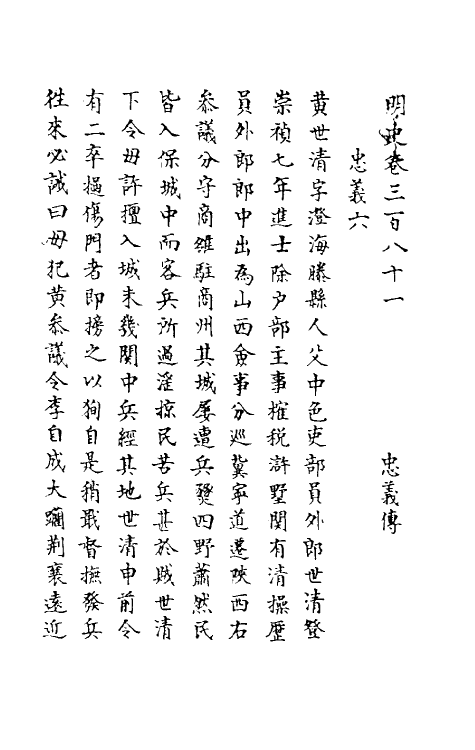 明史卷三百八十一
忠義六 忠義傳
黄世清字澄海滕縣人父中色吏部員外郎世清登
崇禎七年進士除户部主事榷税滸墅関有清操歴
員外郎郎中出為山西僉事分巡冀寧道遷陜西右
叅議分守商雒駐商州其城屢遭兵燹四野蕭然民
皆入保城中而客兵所過淫掠民苦兵甚於賊世清
下令毋許擅入城未幾関中兵經其地世清申前令
有二卒撾傷門者即搒之以狥自是稍戢督撫發兵
徃來必誡曰毋犯黄叅議令李自成大躪荆襄遠近